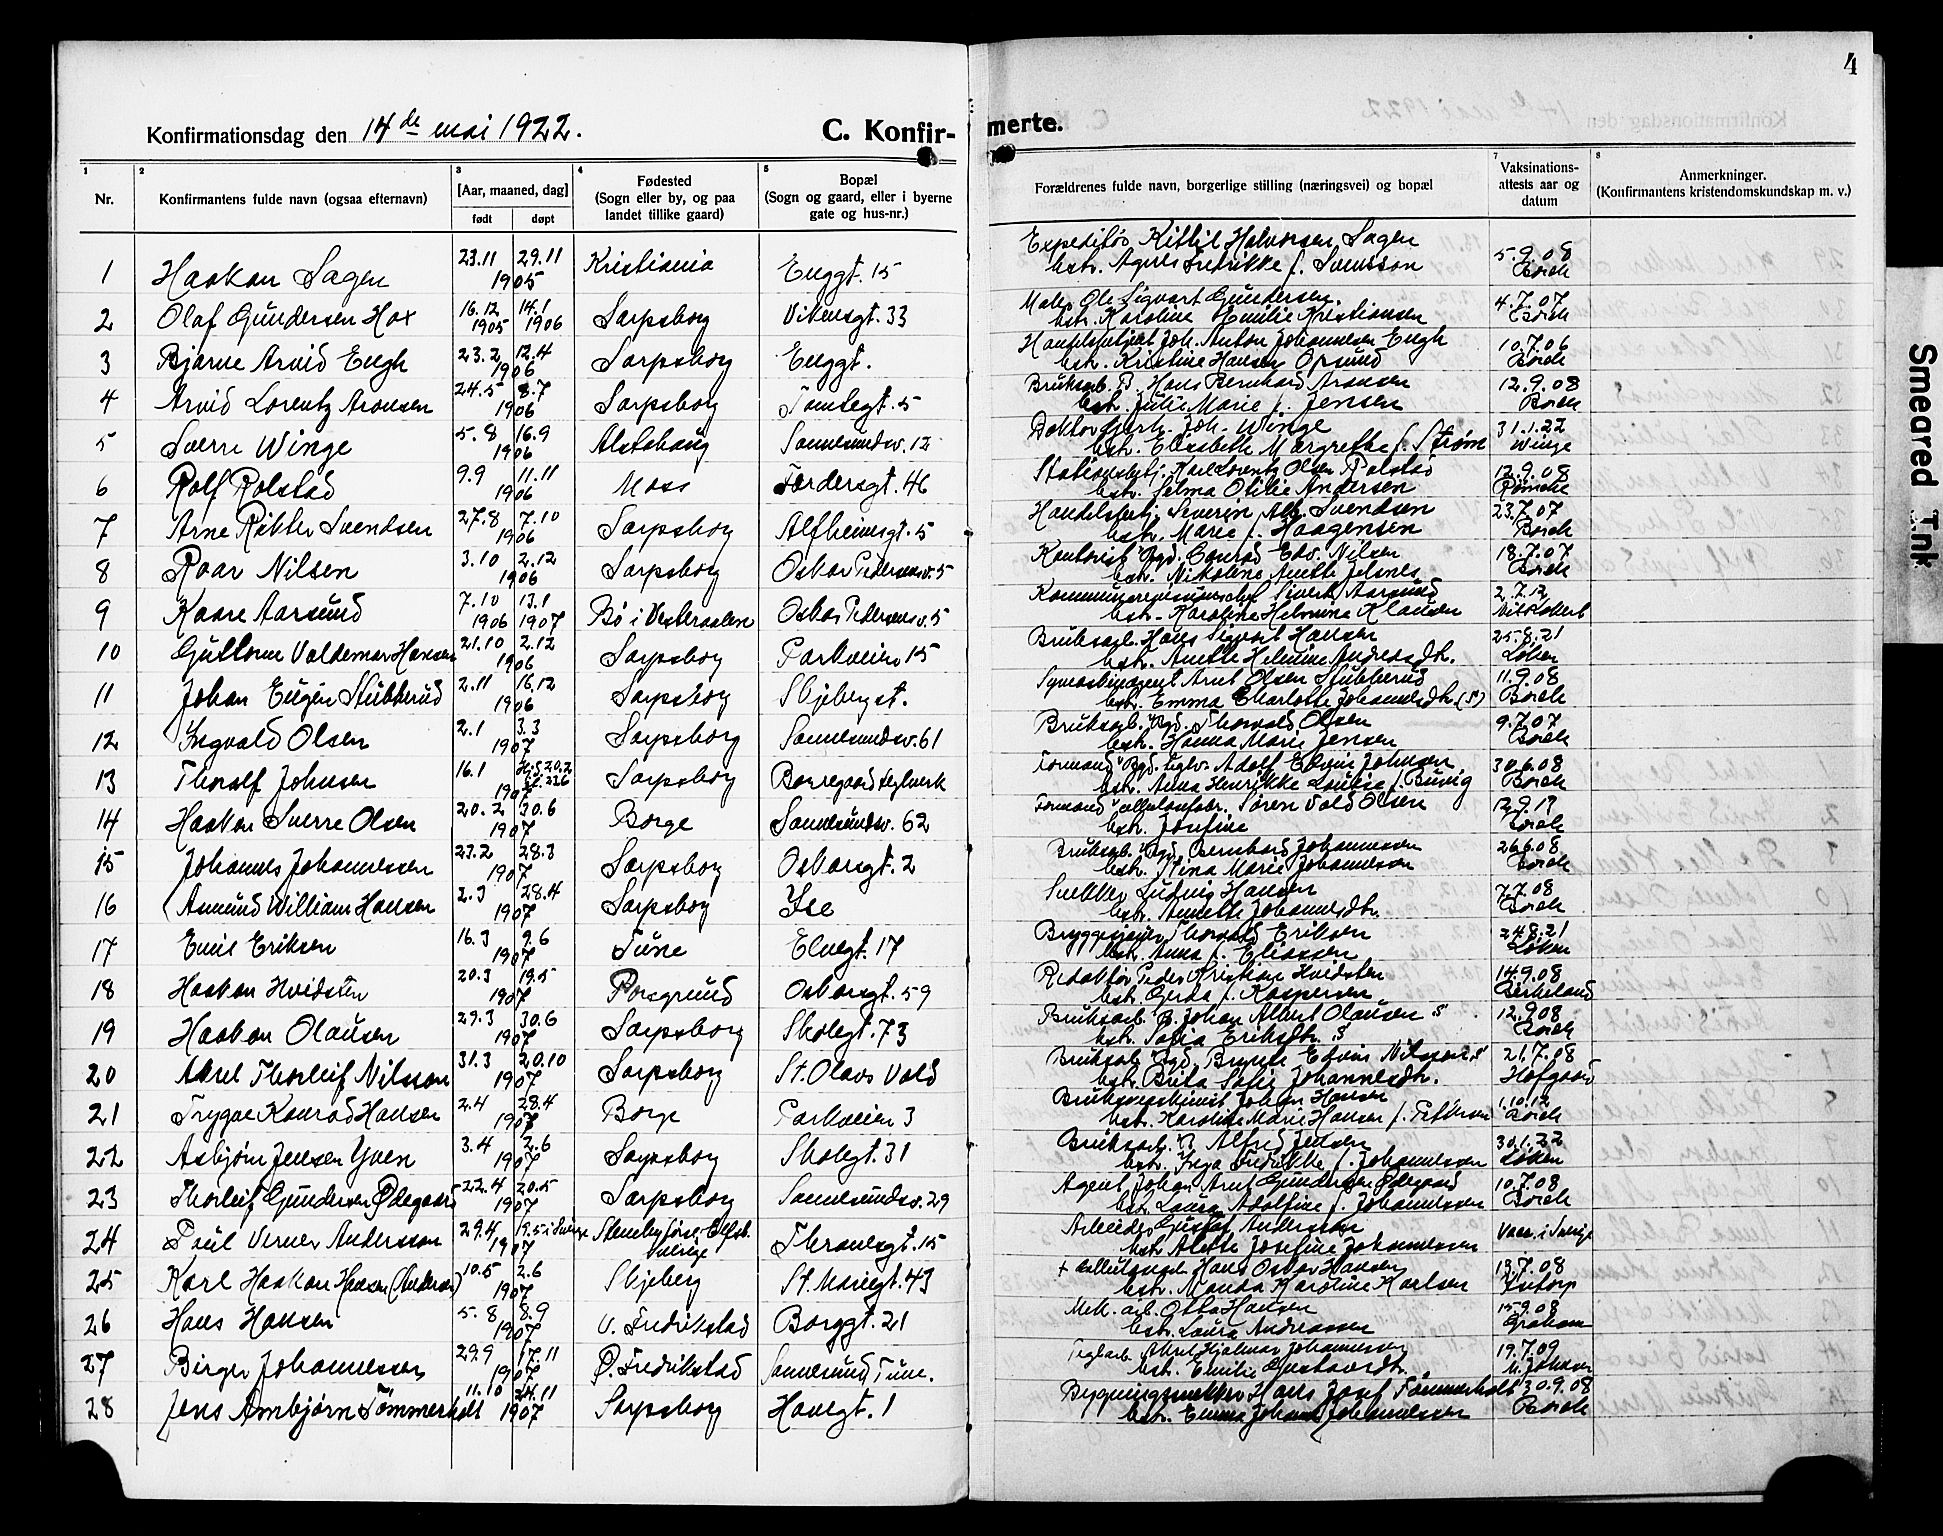 4
Konfirmationsdag den 14de mai 1922.
C. Konfir-
merte.
1 2 3 4 5 7 8
Nr.
Konfirmantens fulde navn (ogsaa efternavn)
[Aar, maaned, dag]
født døpt
Fødested
(Sogn eller by, og paa
landet tillike gaard)
Bopæl
(Sogn og gaard, eller i byerne
gate og hus-nr.)
Forældrenes fulde navn, borgerlige stilling (næringsvei) og bopæl
Vaksinations-
attests aar og
datum
Anmerkninger.
(Konfirmantens kristendomskundskap m. v.)
1 Haakon Sagen 23.11 29.11 1905 Kristiania Enggt. 15 Expeditør Kittil Halvorsen Sagen
hstr. Agnes Fredrikke f. Svensson 5.9.08 Borch
2 Olaf Gundersen Hox 16.12 1905 14.1 1906 Sarpsborg Vitensgt. 33 Maler Ole Sigvart Gundersen.
hstr. Karoline Emilie Kristiansen 4.7.07 Borch
3 Bjarne Arvid Engh 23.2 12.4 1906 Sarpsborg Enggt. Handelsbetjent Joh. Anton Johannesen Engh
hstr. Kristine Hansen Opsund 10.7.06 Borch
4 Arvid Lorentz Aronsen 24.5 8.7 1906 Sarpsborg Tomtegt. 5 Bruksarb. B. Hans Bernhard Aronsen
hstr. Julie Marie f. Jensen 12.9.08 Borch
5 Sverre Winge 5.8 16.9 1906 Alstahaug Sannesundsv. 12 Doktor Joh. Winge
hstr. Elisabeth Margrethe f. Strøm 31.1.22 Winge
6 Rolf Rolstad 9.9 11.11 1906 Moss Tordersgt. 46 Stationsbetj. Karl Lorentz Olsen Rolstad
hstr. Selma Otilie Andersen 12.9.08
7 Arne Rikter Svendsen 27.8 7.10 1906 Sarpsborg Alfheimsgt. 5 Handelsbetj. Severin Alb. Svendsen
hstr. Marie f. Haagensen 23.7.07 Borch
8 Roar Nilsen 3.10 2.12 1906 Sarpsborg Oskar Pedersensv. 5 Kontorist Bgd. Conrad Edv. Nilsen
hstr. Nikoline Anette Jelsnes 18.7.07 Borch
9 Kaare Aarsund 7.10 1906 13.1 1907 Bø i Vesteraalen Oskar Pedersensv. 5 Kommunerevisor Sivert Aarsund
hstr. Karoline Helmine Klausen 2.7.12
10 Guttorm Valdemar Hansen 21.10 2.12 1906 Sarpsborg Parkveien 15 Bruksarb. Hans Sigvart Hansen
hstr. Anette Helmine Andreasdtr. 25.8.21 Løken
11 Johan Eugen Stubberud 2.11 16.12 1906 Sarpsborg Skjebergt. Symaskinagent Arnt Olsen Stubberud
hstr. Emma Charlotte Johannesdtr. (S) 11.9.08 Borch
12 Ingvald Olsen 2.1 3.3 1907 Sarpsborg Sannesundsv. 61 Bruksarb. Bgd. Thorvald Olsen
hstr. Hanna Marie Jensen 9.7.07 Borch
13 Thoralf Johnsen 16.1 1907 Sarpsborg Borregaard teglverk Formand Bgd. teglv. Adolf Edvin Johnsen
hstr. Anna Henrikke Lovise f. Buvig 30.6.08 Borch
14 Haakon Sverre Olsen 20.2 30.6 1907 Borge Sannesundsv. 62 Formand cellulosefabr. Søren Vold Olsen
hstr. Josefine 12.9.17 Borch
15 Johannes Johannessen 23.2 28.3 1907 Sarpsborg Oskarsgt. 2 Bruksarb. Bgd. Bernhard Johannessen
hstr. Stina Marie Johannessen 26.6.08 Borch
16 Asmund William Hansen 2.3 28.4 1907 Sarpsborg Ise Snekker Ludvig Hansen
hstr. Annette Johannesdtr. 7.7.08 Borch
17 Emil Eriksen 16.3 9.6 1907 Tune Elvegt. 17 Bryggesjauer Thorvald Eriksen
hstr. Anna f. Eliassen 24.8.21 Løken
18 Haakon Hvidsten 20.3 19.5 1907 Porsgrund Oskarsgt. 59 Redaktør Peder Kristian Hvidsten
hstr. Gerda f. Kaspersen 14.9.08 Birkeland
19 Haakon Olausen 29.3 30.6 1907 Sarpsborg Skolegt. 73 Bruksarb. B. Johan Albert Olausen S
hstr. Sofia Eriksdtr. S 12.9.08 Borch
20 Axel Thorleif Nilsson 31.3 20.10 1907 Sarpsborg St. Olavs Vold Bruksarb. Bgd. Edvin Nilsson S
hstr. Brita Sofie Johannesdtr. 21.7.08 Hofgaard
21 Trygve Konrad Hansen 2.4 28.4 1907 Borge Parkveien 3 Johan Hansen
hstr. Karoline Marie Hansen f. Pettersen 1.10.12 Borch
22 Asbjørn Jensen Yven 3.4 2.6 1907 Sarpsborg Skolegt. 31 Bruksarb. B. Alfred Jensen
hstr. Inga Fredrikke f. Johannessen 30.1.22 Løken
23 Thorleif Gundersen Ødegaard 22.4 20.5 1907 Sarpsborg Sannesundsv. 29 Agent Johan Arnt Gundersen Ødegaard
hstr. Laura Adolfine f. Johannessen 10.7.08 Borch
24 Paul Verner Andersson 29.4 19.5 i Sverige 1907 Sverige Thranesgt. 15 Arbeider Gustaf Andersson
hstr. Alette Josefine Johannessen Vacc. i Sverige
25 Karl Haakon Hansen (Andersen) 10.5 2.6 1907 Skjeberg St. Mariegt. 43 + Hans Oskar Hansen
hstr. Manda Karoline Karlsen 13.7.08
26 Hans Hansen 5.8 8.9 1907 V. Fredrikstad Borggt. 21 Mek. arb. Otto Hansen
hstr. Laura Andreassen 15.9.08 Graham
27 Birger Johannessen 29.9 17.11 1907 Ø. Fredrikstad Sannesund, Tune. Teglarb. Axel Hjalmar Johannessen
hstr. Emilie Gustavsdtr. 19.7.09 M. Johnsen
28 Jens Arnbjørn Tømmerholt 11.10 24.11 1907 Sarpsborg Havegt. 1 Bygningssnekker Hans Josef Tømmerholt
hstr. Emma Johanne Johannessen 30.9.08 Borch
Smeared Ink